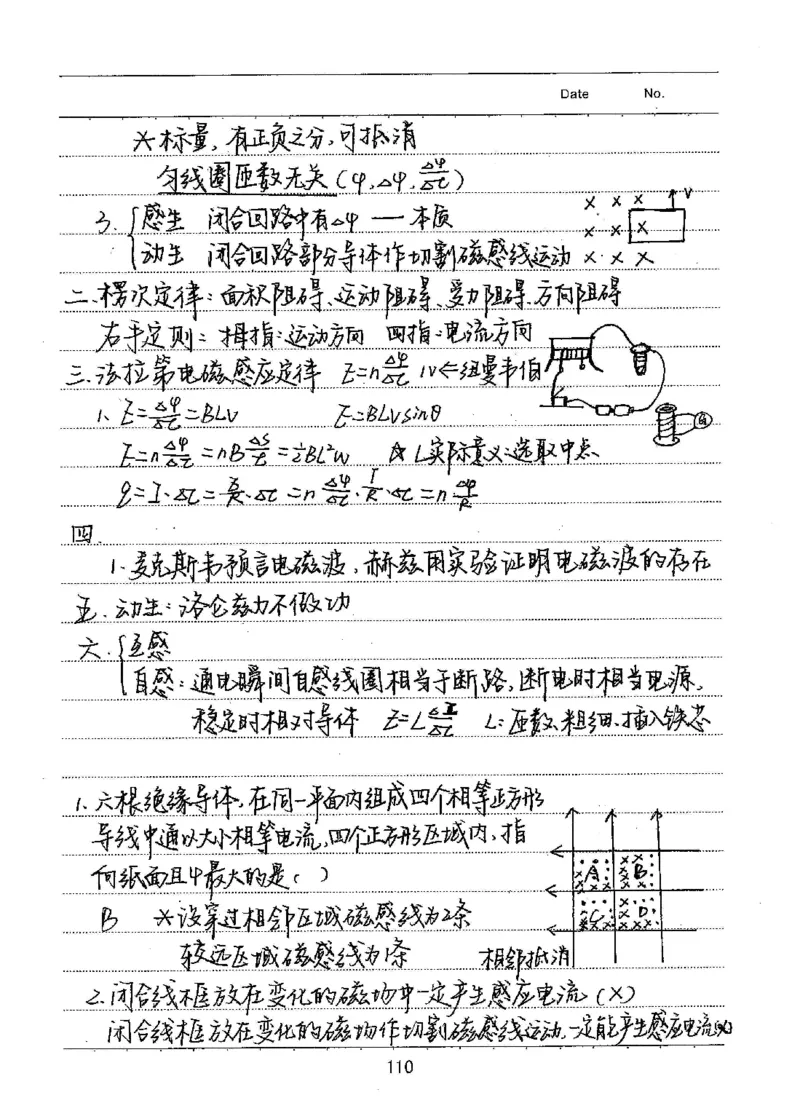 Date No.
*标量,有正负之分,可抵消
匀线圈匝数无关(φ,Δφ,Δφ/Δt)
3.{感生 闭合回路中有Δφ — 本质
动生 闭合回路部分导体作切割磁感线运动
× × × V
× × ×
× × ×
二、楞次定律:面积阻碍、运动阻碍、受力阻碍、方向阻碍
右手定则:拇指:运动方向 四指:电流方向
三、法拉第电磁感应定律 E=nΔφ/Δt 1V⇐纽曼韦伯
1、E=Δφ/Δt=BLV E=BLVsinθ
G
E=nΔφ/Δt=nBΔS/t=½BL²w ☆L实际意义:选取中点
q=I·Δt=E/R·Δt=nΔφ/Δt·I/R·Δt=nΔφ/R
四.
1.麦克斯韦预言电磁波,赫兹用实验证明电磁波的存在
五.动生:洛仑兹力不做功
六.{互感
自感:通电瞬间自感线圈相当于断路,断电时相当电源,
稳定时相对导体 E=LΔI/Δt L:匝数、粗细、插入铁芯
1.六根绝缘导体,在同一平面内组成四个相等正方形
导线中通以大小相等电流,四个正方形区域内,指
向纸面且φ最大的是( )
A B
C D
B *设穿过相邻区域磁感线为2条
较远区域磁感线为1条 相邻抵消
2.闭合线框放在变化的磁场中一定产生感应电流(×)
闭合线框放在变化的磁场作切割磁感线运动,一定能产生感应电流(×)
110